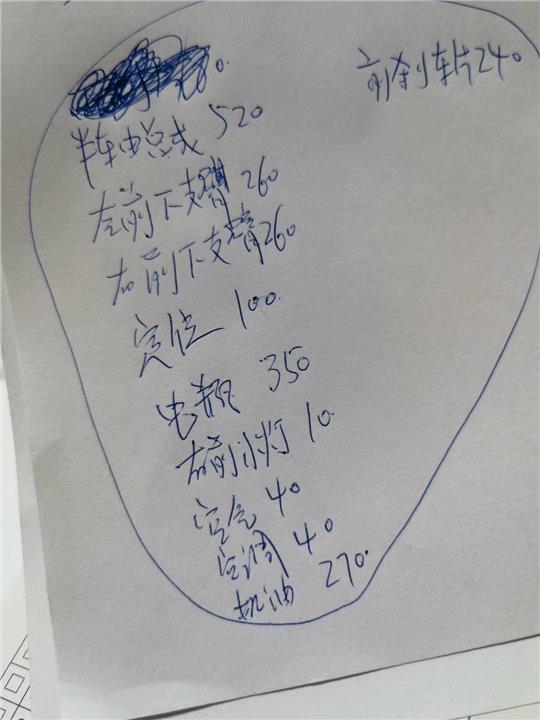 前刹车片240
半轴总成 520
左前下支臂 260
右前下支臂260
定位 100.
电瓶 350
右前小灯 10.
空气 40
空调 40
机油 270.